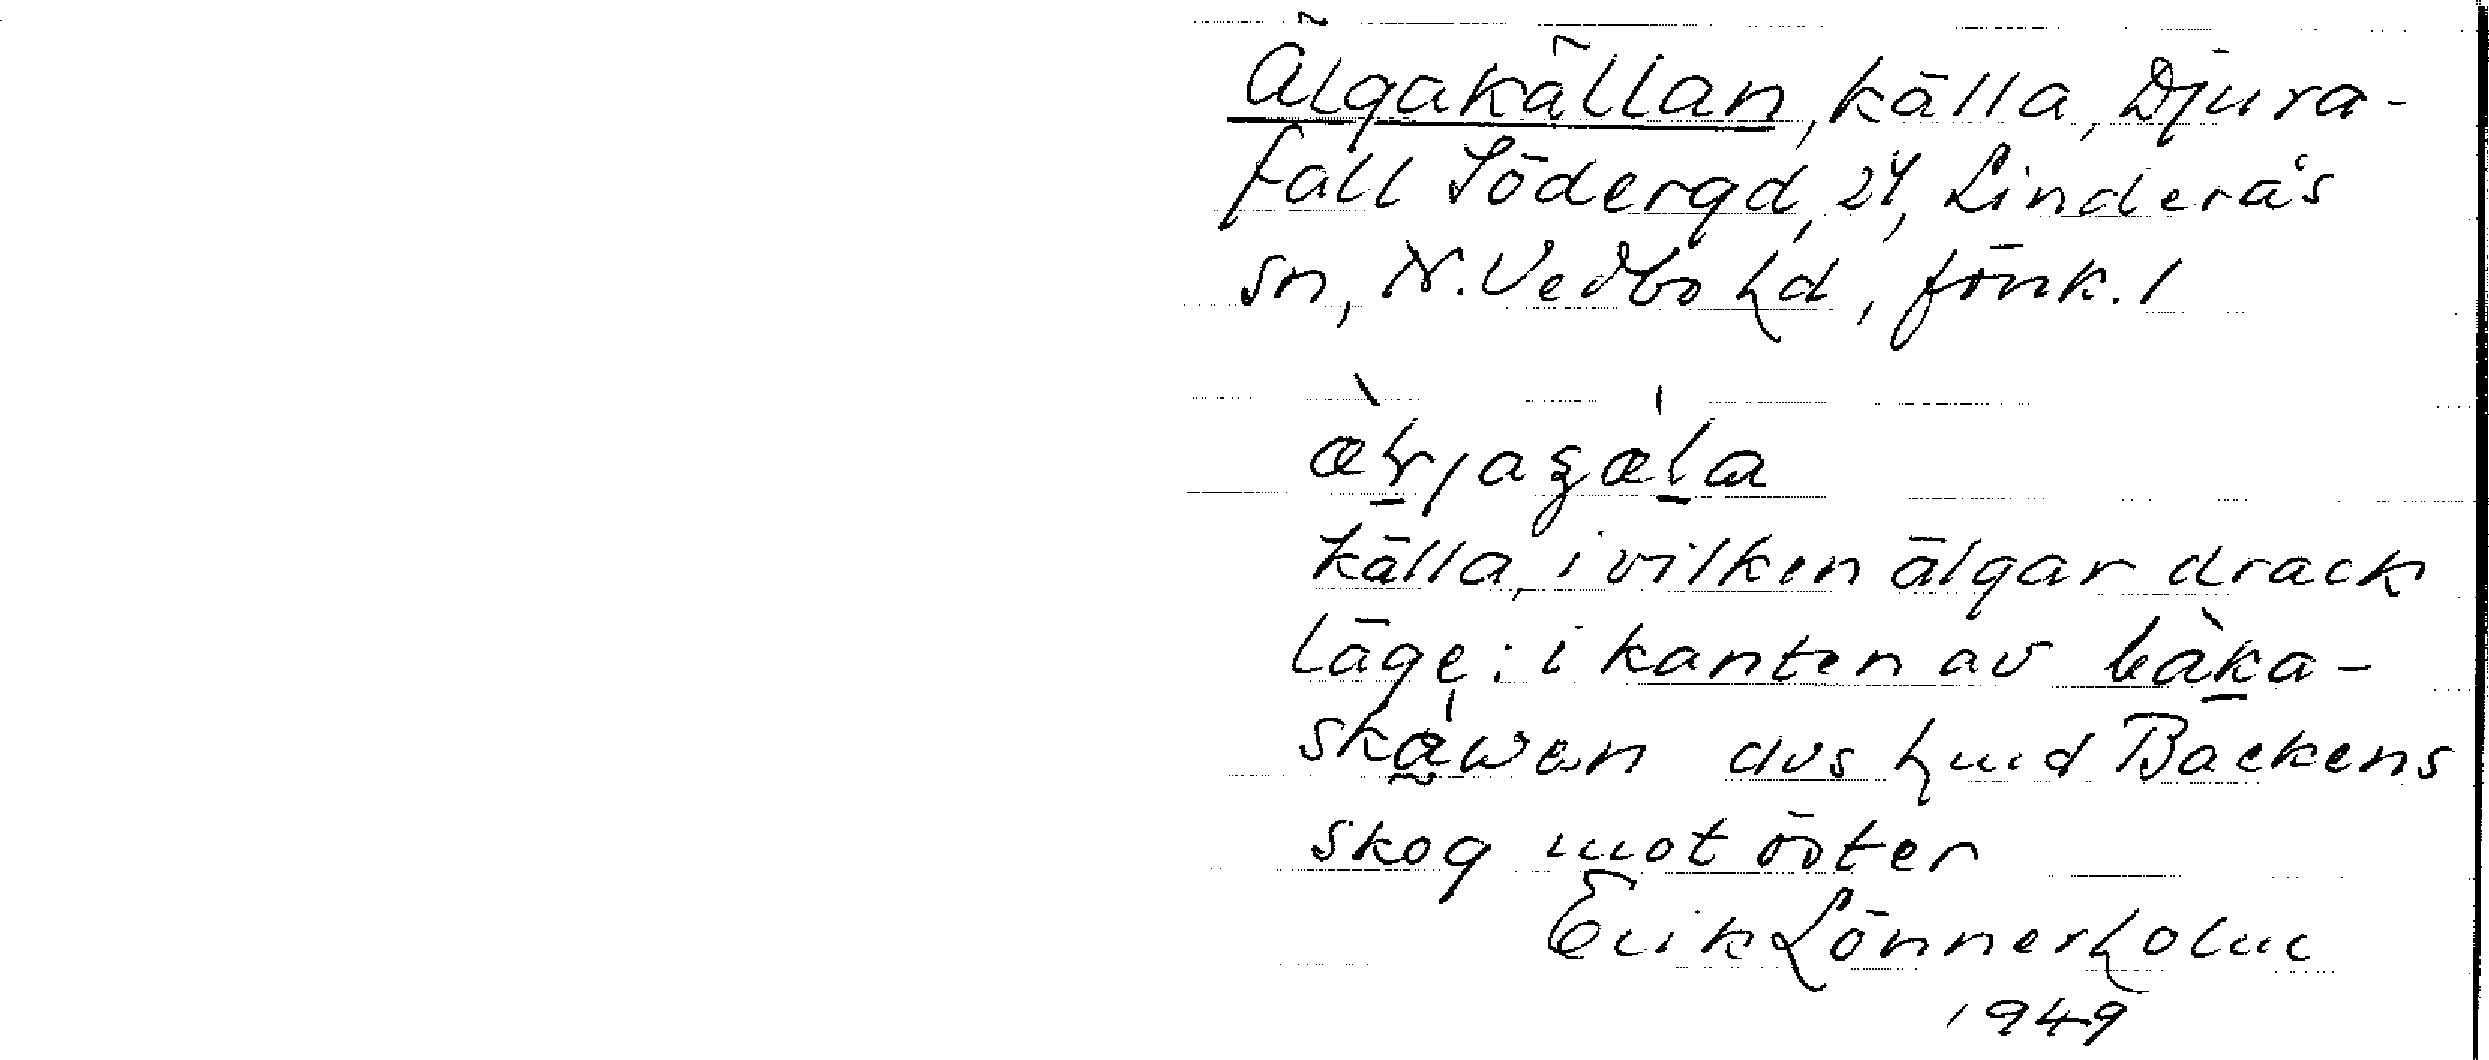 Älgakällan, källa, Djura-
fall Södergd, 24, Linderås
sn, N. Vedbo hd, Jönk. l
källa, i vilken älgar drack
läge: i kanten av bàka-
skáwen dvs hmd Backens
skog mot öster
Erik Lönnerholm
1949